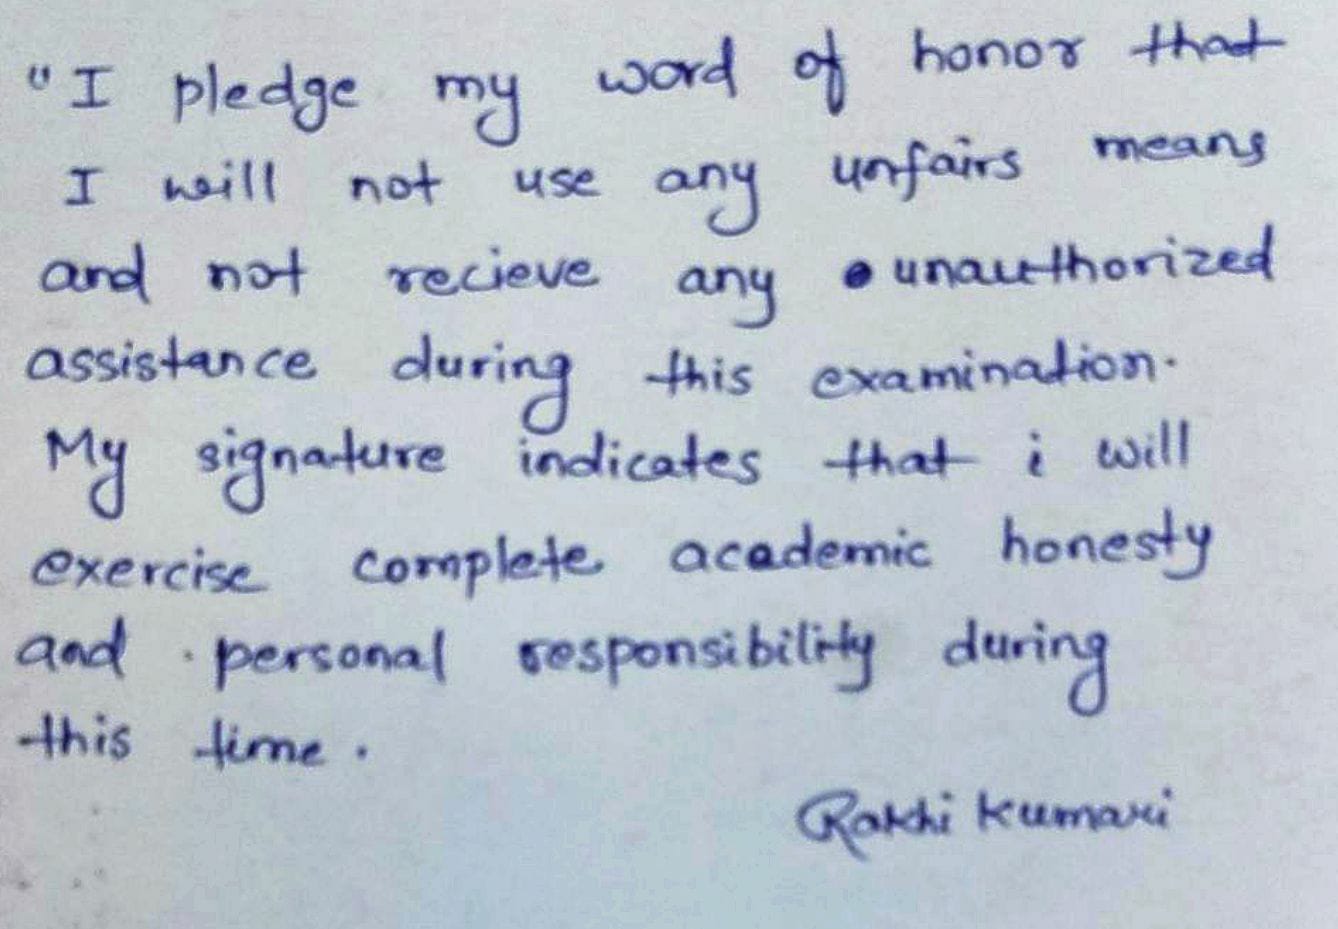 "I pledge my word of honor that
I will not use any unfairs means
and not recieve any unauthorized
assistance during this examination.
My signature indicates that i will
exercise complete academic honesty
and personal responsibility during
this time.
Rakhi Kumari